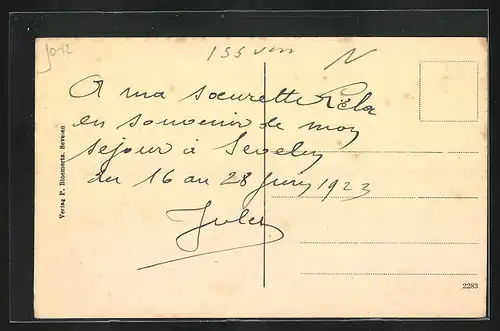 A ma soeurette Lola
en souvenir de mon
sejour à Sevelen
du 16 au 28 Juin 1923
Jules
Verlag P. Bloemertz, Sevelen
2283